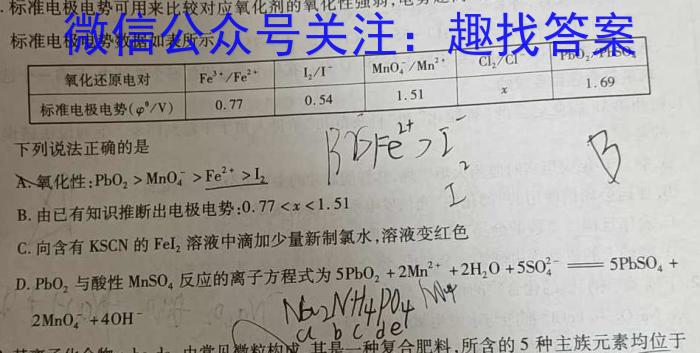 标准电极电势可用来比较对应氧化剂的氧化性强弱,电势越
微信公众号关注:趣找答案
标准电极电势数据如表所示
氧化还原电对 Fe³⁺/Fe²⁺ I₂/I⁻ MnO₄⁻/Mn²⁺ Cl₂/Cl⁻ PbO₂/PbSO₄
标准电极电势(φ⁰/V) 0.77 0.54 1.51 x 1.69
下列说法正确的是
Fe²⁺>I⁻
I₂
B
A. 氧化性:PbO₂>MnO₄⁻>Fe²⁺>I₂
B. 由已有知识推断出电极电势:0.77<x<1.51
C. 向含有 KSCN 的 FeI₂ 溶液中滴加少量新制氯水,溶液变红色
D. PbO₂ 与酸性 MnSO₄ 反应的离子方程式为 5PbO₂+2Mn²⁺+2H₂O+5SO₄²⁻══5PbSO₄+
2MnO₄⁻+4OH⁻
Na₂NH₄PO₄
a b c d e
由常见微粒构成,其是一种复合肥料,所含的 5 种主族元素均位于